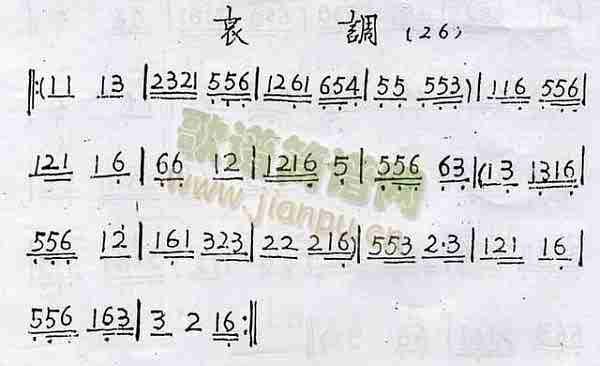 哀 調 (26)
‖:(11 13 | 2321 556 | 1261 654 | 55 553) | 116 556 |
121 16 | 66 12 | 1216 5 | 556 63 | (13 1316 |
556 12 | 161 323 | 22 216) | 553 2·3 | 121 16 |
556 163 | 3 2 16 :‖
歌谱简谱网
www.jianpu.cn